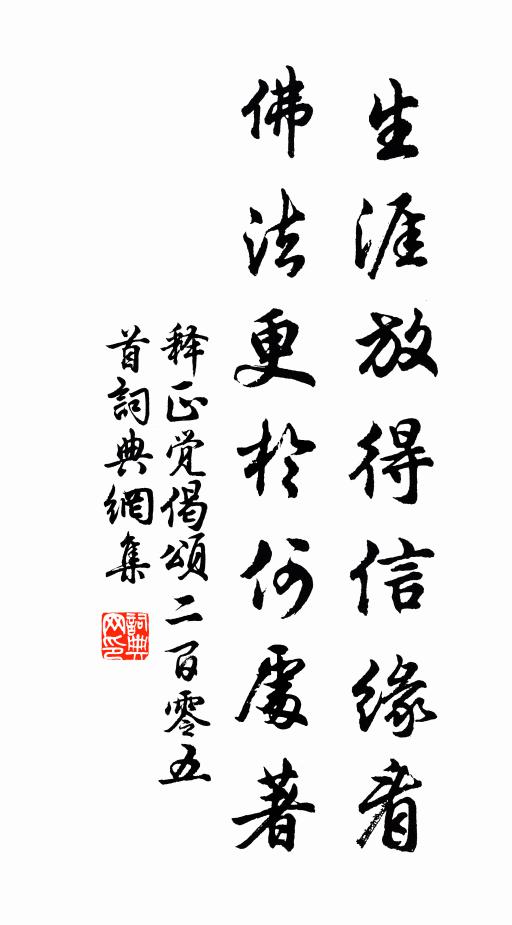 生涯放得信緣看
佛法更於何處著
释正觉偈頌二百零五
首詞典網集
詞典
网印